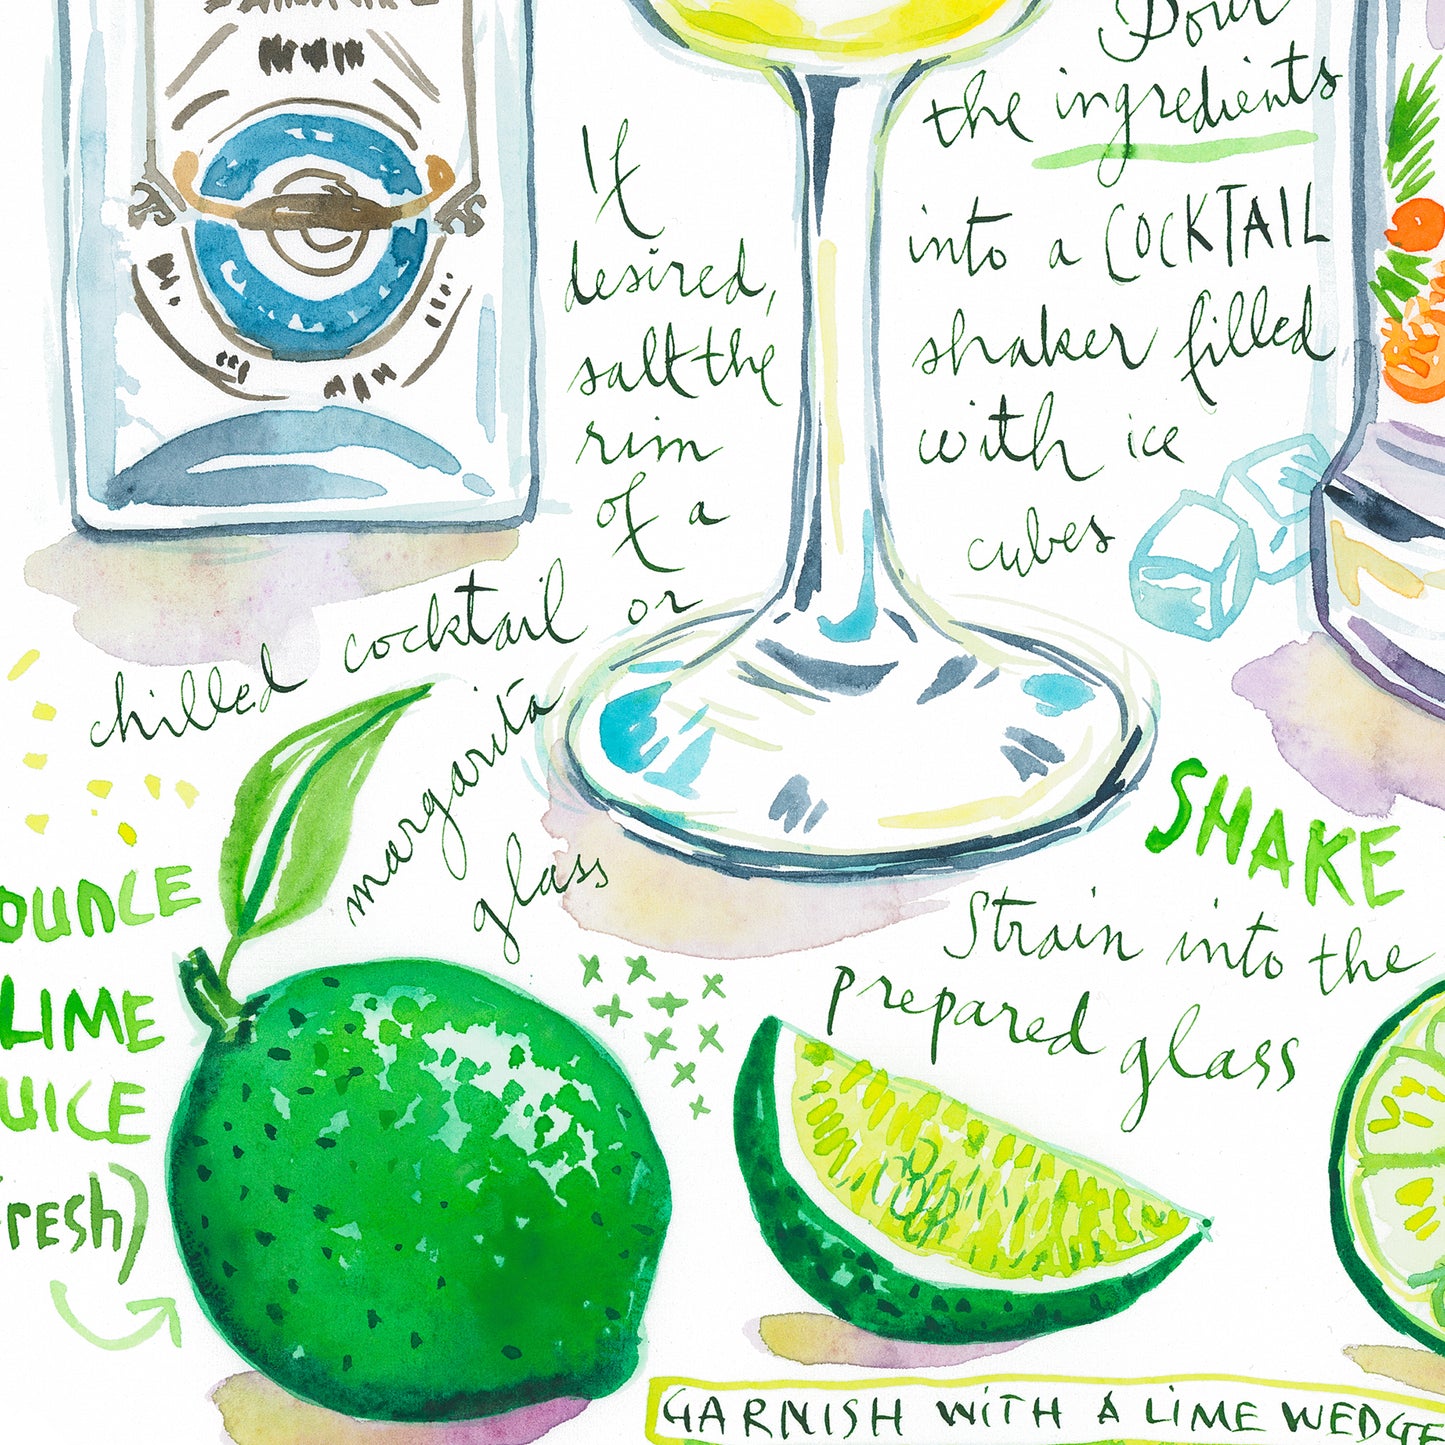 Pour
the ingredients
into a COCKTAIL
shaker filled
with ice
cubes
If
desired,
salt the
rim
of a
chilled cocktail or
margarita
glass
SHAKE
Strain into the
prepared glass
OUNCE
LIME
UICE
(FRESH)
GARNISH WITH A LIME WEDGE